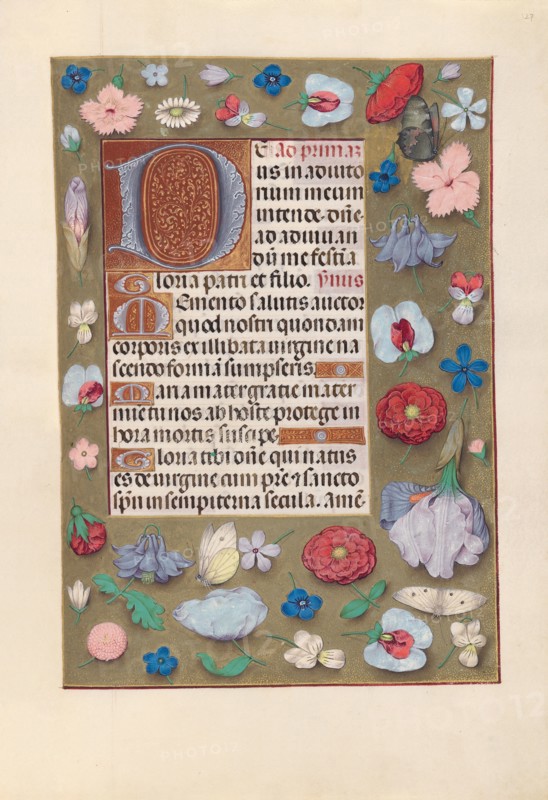 29
Ad primaz
Deus in adiuto
rium meum
intende. dn̄e
ad adiuuan
dū me festīa
Gloria patri et filio. ymnus
Memento salutis auctor
quod nostri quondam
corporis ex illibata uirgine na
scendo formā sumpseris
Maria mater gratie mater
mie tu nos ab hoste protege in
hora mortis suscipe
Gloria tibi dn̄e qui natus
es de uirgine cum pr̄e ⁊ sancto
sp̄u in sempiterna secula. Amē.
PHOTO12